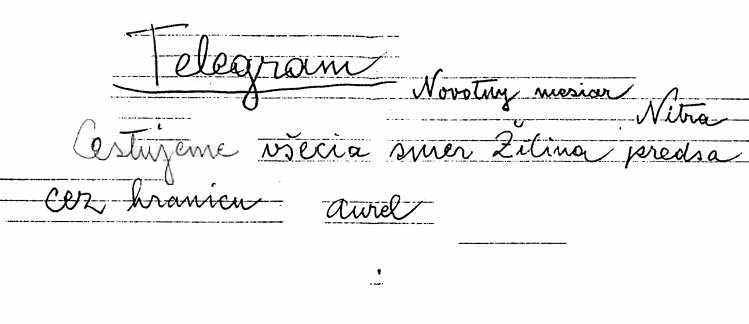 Telegram
Novotny mesiar
Nitra
Cestujeme všecia smer Žilina predsa
cez hranicu aurel